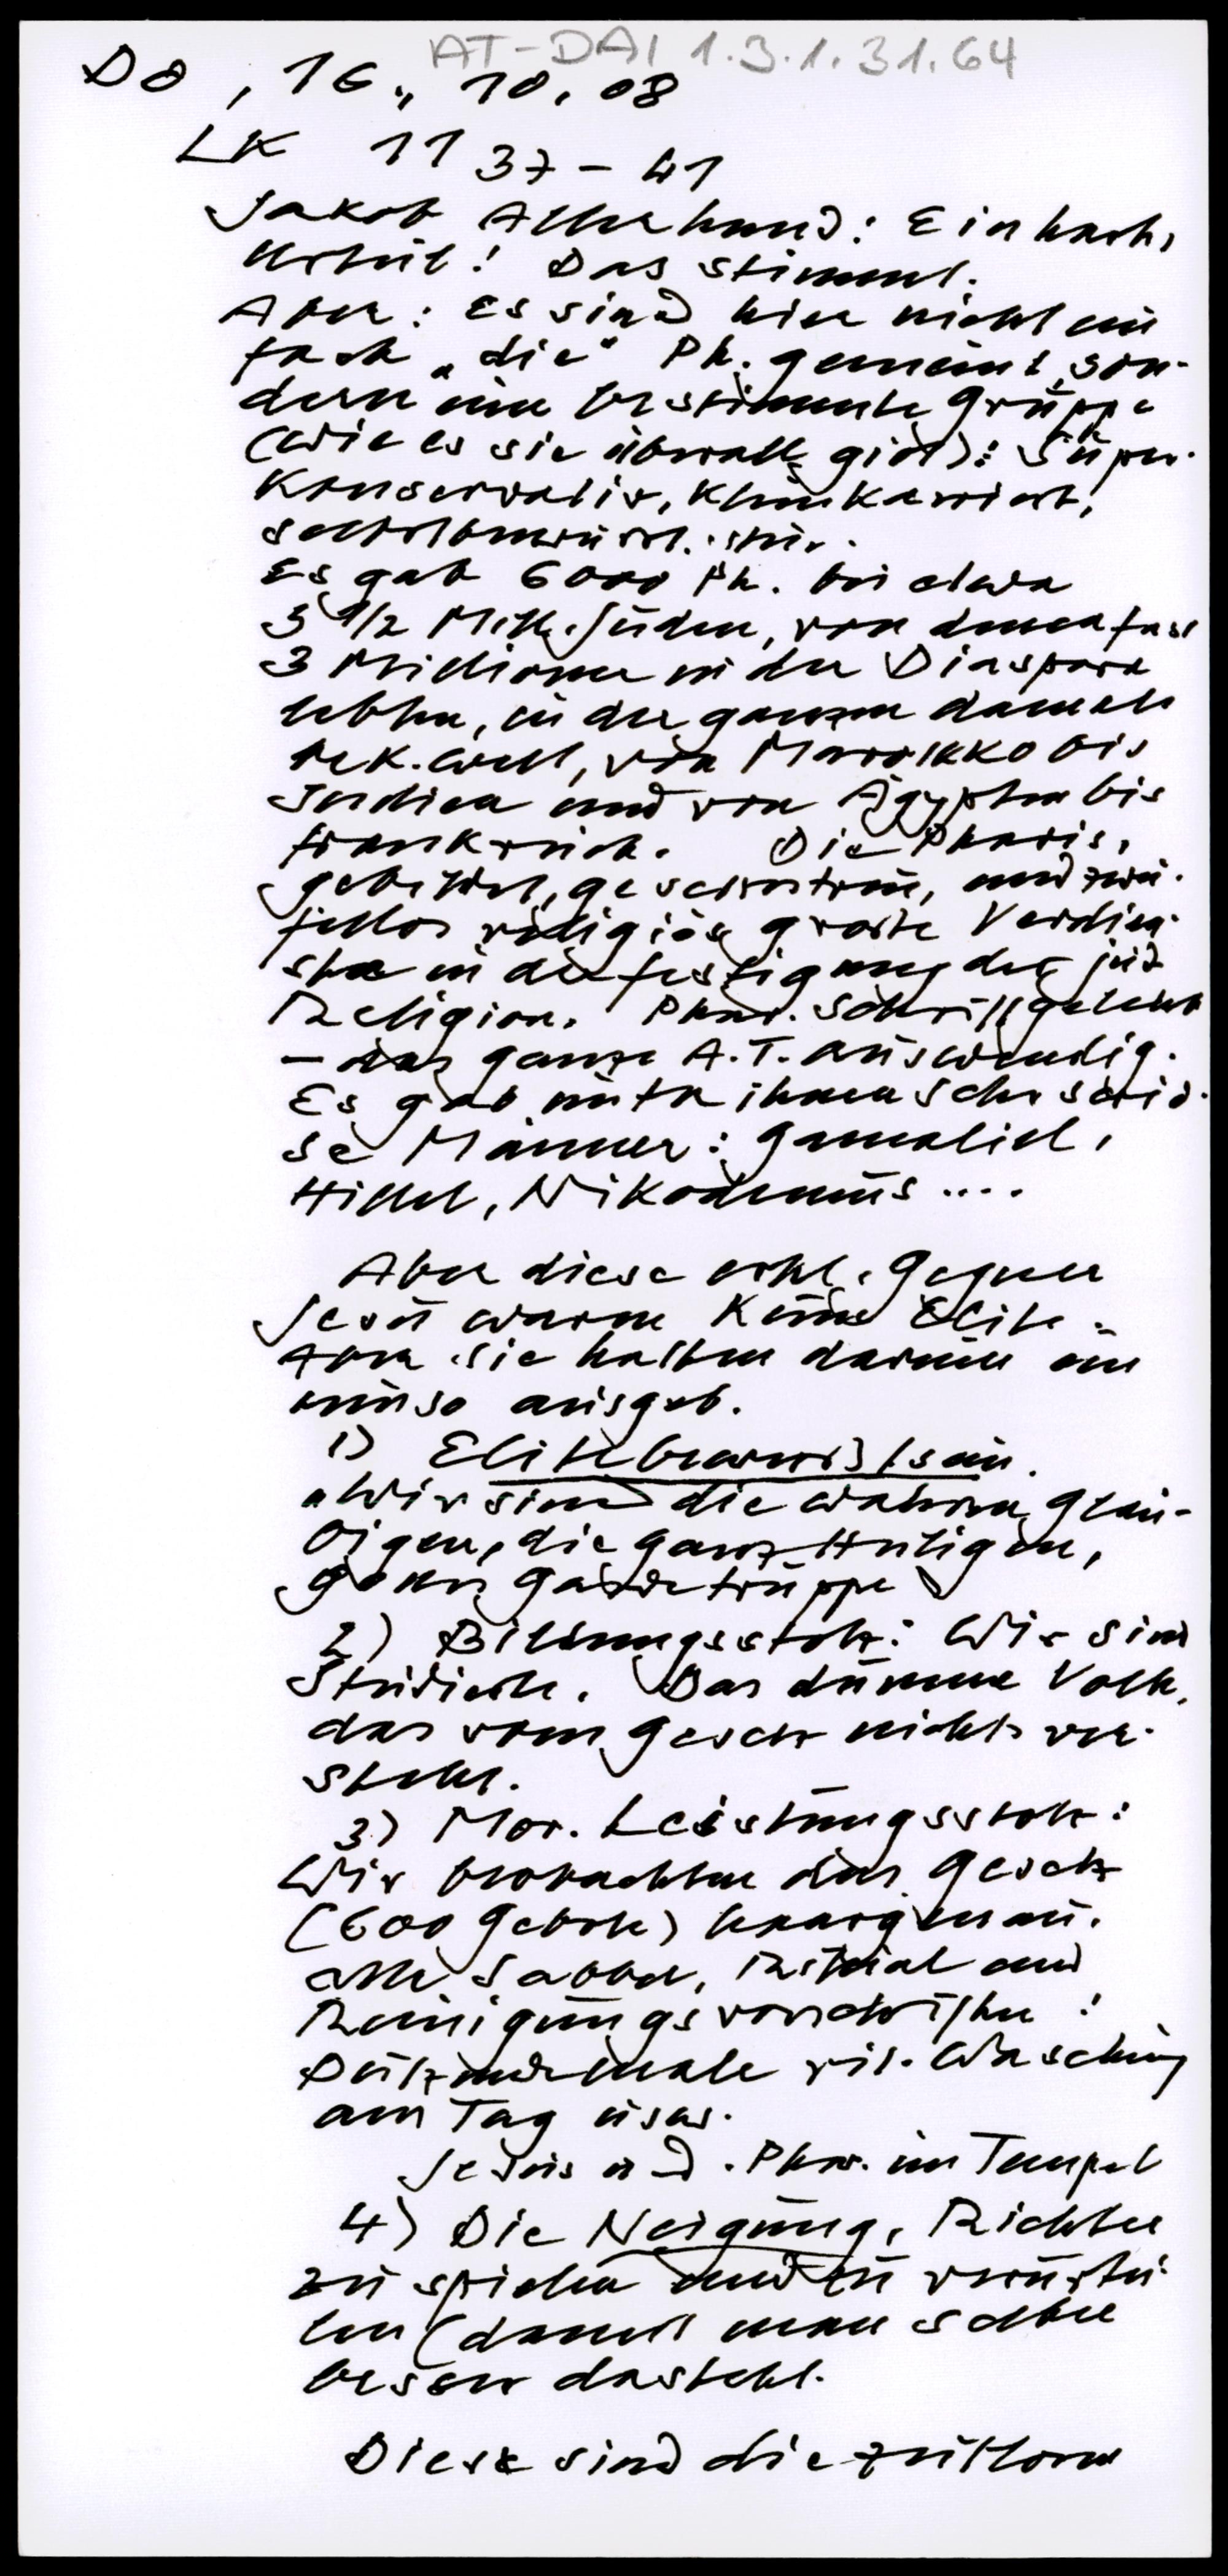 AT-DAI 1.3.1.31.64
Do, 16., 10. 08
LK 11 37-41
Jakob Allerhand: Ein hartes
Urteil! Das stimmt.
Aber: Es sind hier nicht ein
fach „die" Ph. gemeint, son-
dern eine bestimmte Gruppe
(wie es sie überall gibt): Super-
Konservativ, Kleinkariert,
selbstbewusst. stur.
Es gab 6000 Ph. bei etwa
3 1/2 Mill. Juden, von denen fast
3 Millionen in der Diaspora
lebten, in der ganzen damals
bek. Welt, von Marokko bis
Indien und von Ägypten bis
Frankreich. Die Pharis.
gebildet, gesetzestreu, und zwei-
fellos religiös große Verdien-
ste in der Festigung der jüd
Religion. Phar. Schriftgelehrte
- das ganze A.T. auswendig.
Es gab unter ihnen sehr seriö-
se Männer: Gamaliel,
Hillel, Nikodemus ....
Aber diese Gegner
Jesu waren Keine Elite -
Aber sie hatten darum ein
umso ausgeb.
1) Elitebewusstsein.
„Wir sind die wahren Gläu-
bigen, die ganz Heiligen,
Gottes Gardetruppe
2) Bildungsstolz: Wir sind
Studierte. Das dumme Volk,
das vom Gesetz nichts ver-
steht.
3) Mor. Leistungsstolz:
Wir beobachten das Gesetz
(600 Gebote) haargenau.
alle Sabbat, Ritual und
Reinigungsvorschriften!
Dutzendemale rit. Waschung
am Tag usw.
Jesus u d. Phar. im Tempel
4) Die Neigung, Richter
zu spielen und zu verurtei-
len (damit man selber
besser dasteht.
Diese sind die zeitlosen